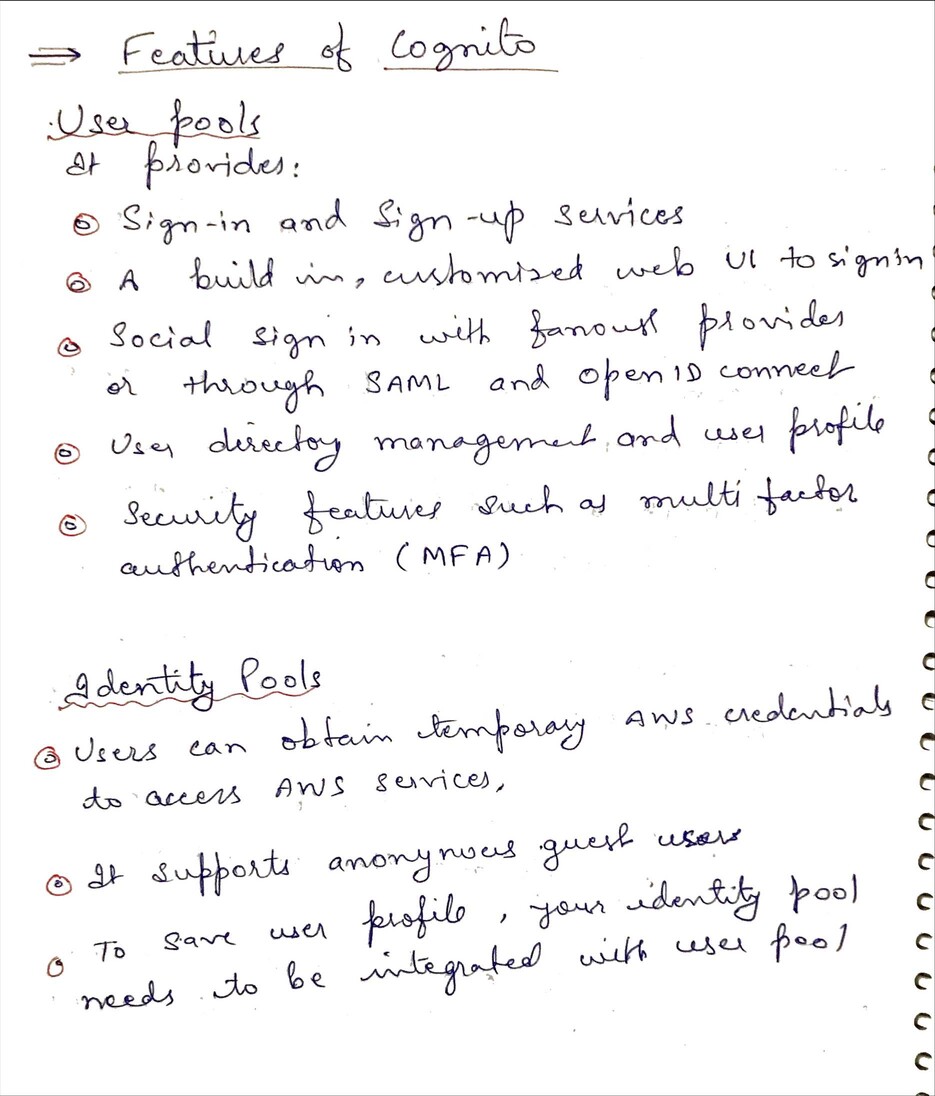 ⇒ Features of Cognito
User pools
It provides:
Sign-in and Sign-up services
A build in, customized web UI to signin
Social sign in with famous provides
or through SAML and open ID connect
User directory management and user profile
Security features such as multi factor
authentication (MFA)
Identity Pools
Users can obtain temporary AWS credentials
to access AWS services,
It supports anonymous guest users
To save user profile, your identity pool
needs to be integrated with user pool